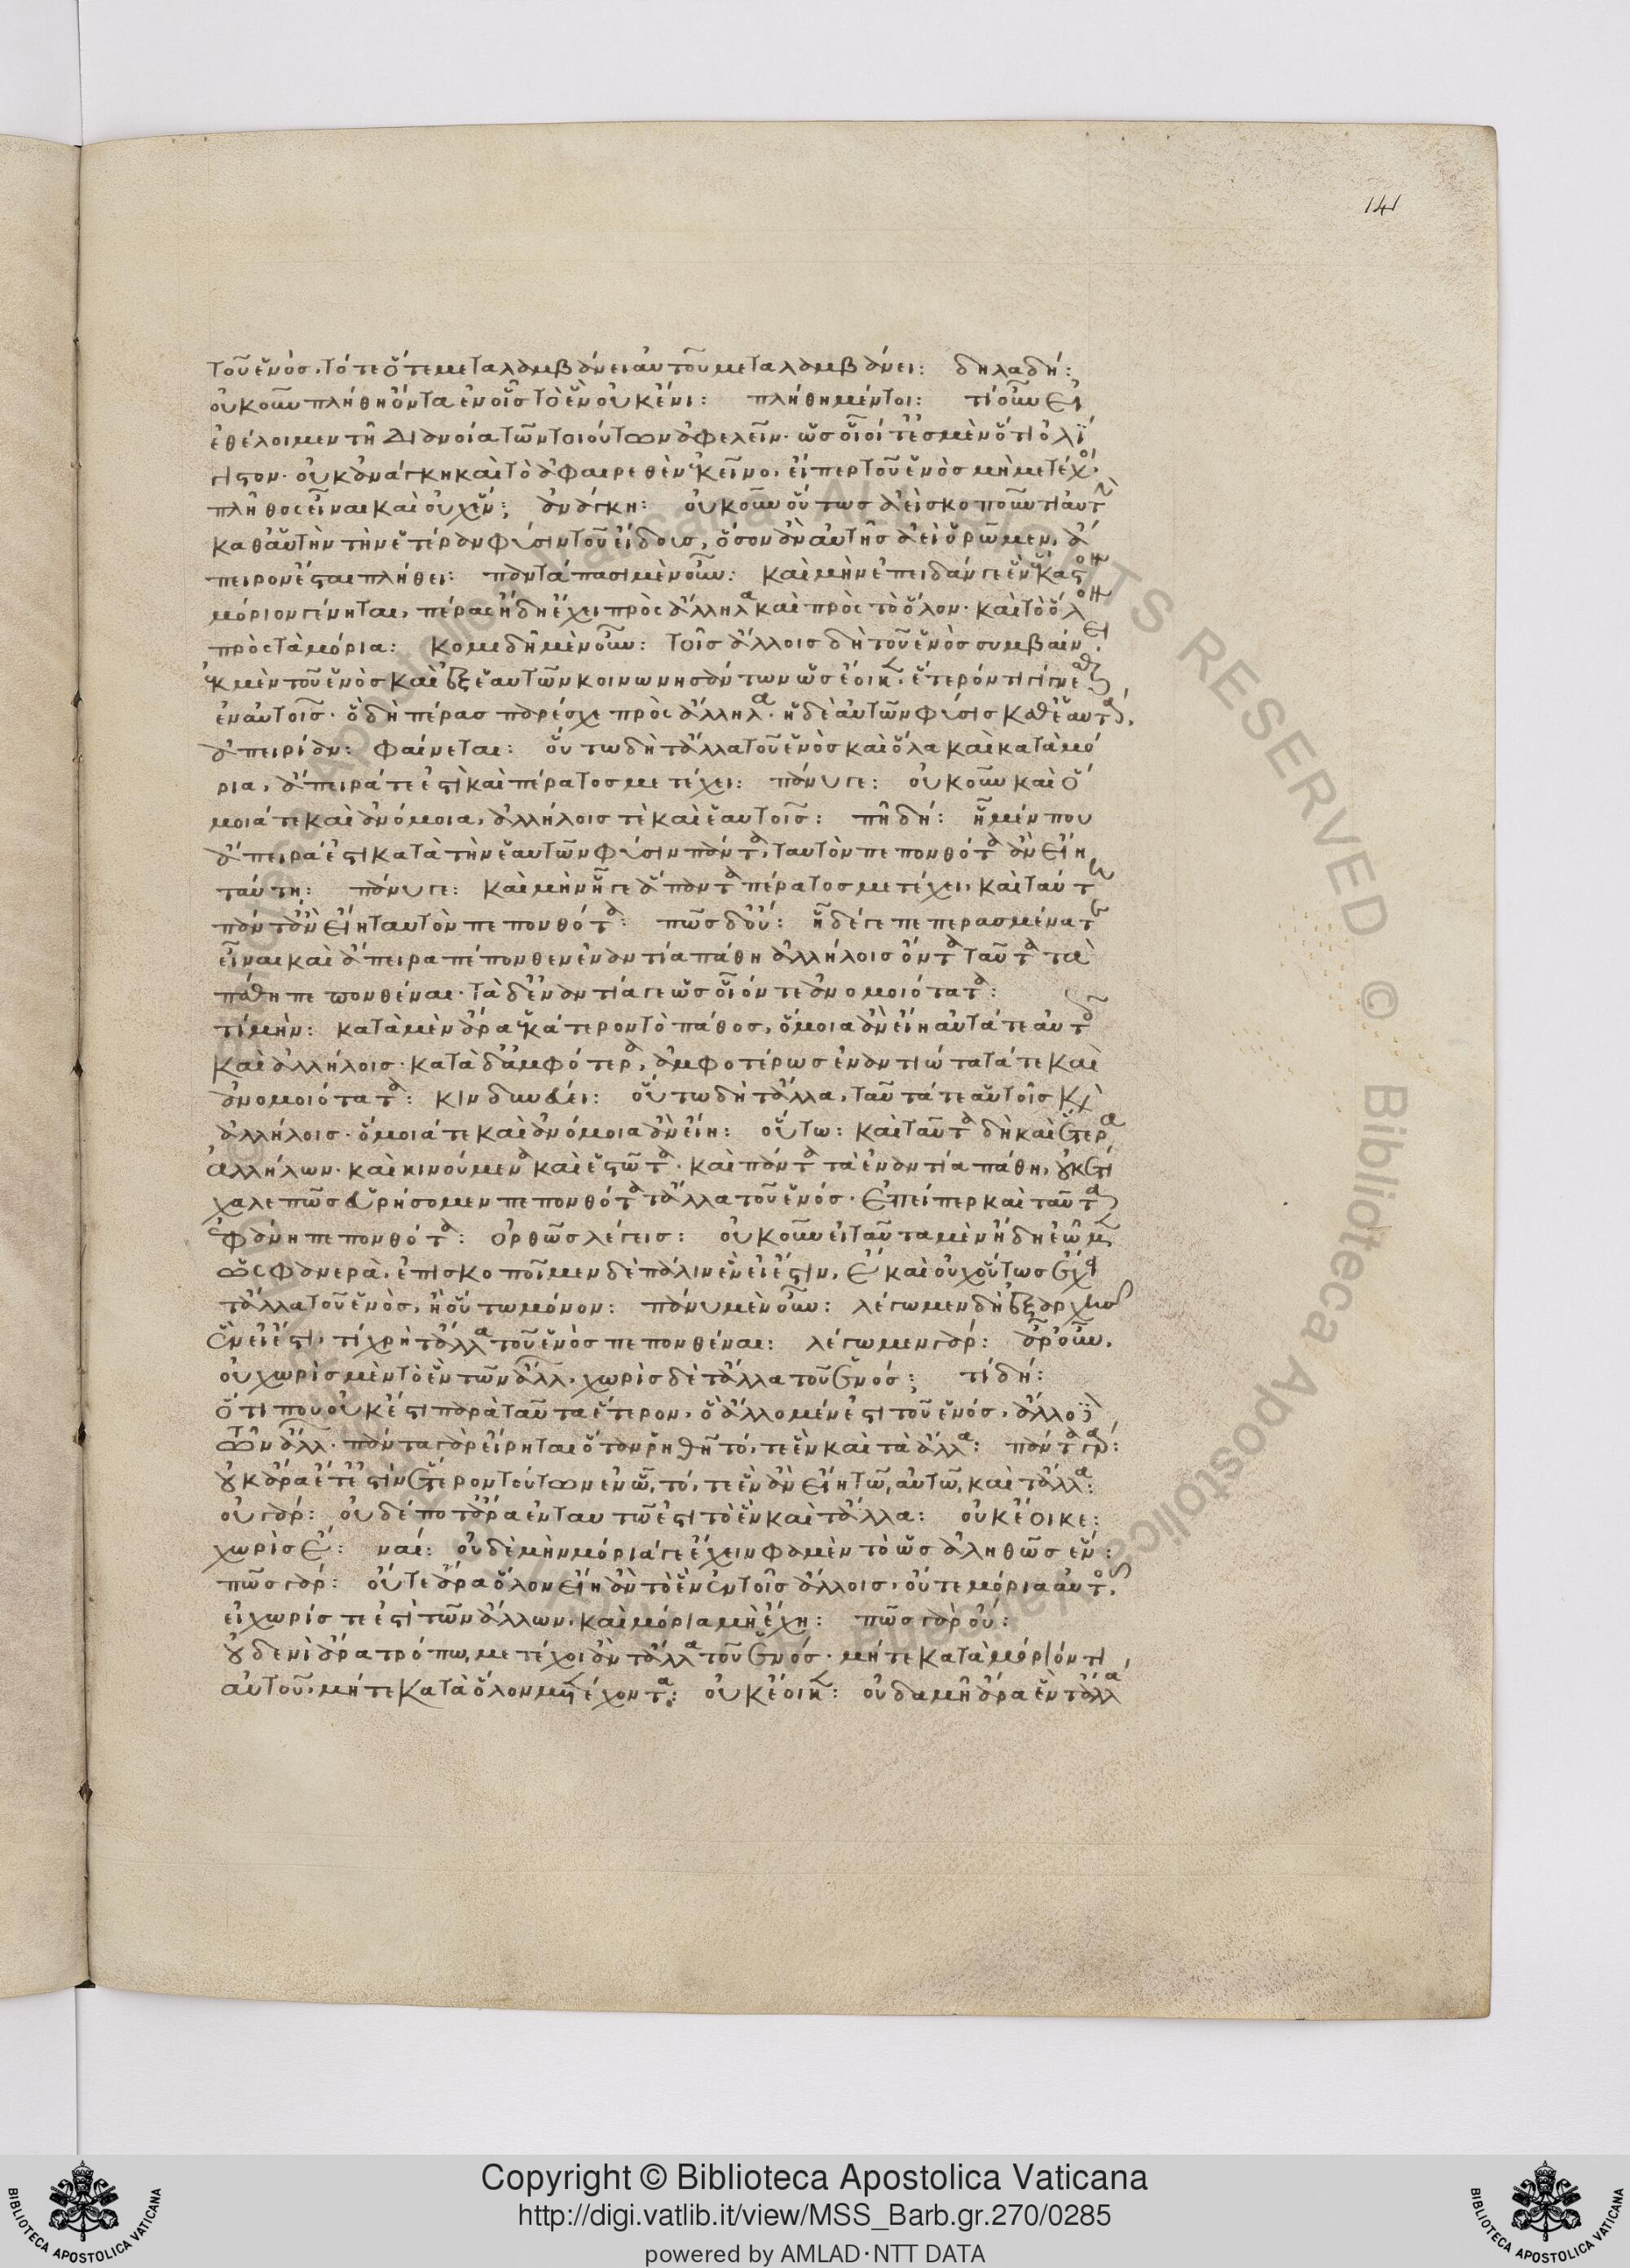 141
τοῦ ἑνὸς, τότε ὅτε μεταλαμβάνει αὐτοῦ μεταλαμβάνει: δηλαδή:
οὐκοῦν πλήθη ὄντα ἐν οἷς τὸ ἓν οὐκ ἔνι: πλήθη μέντοι: τί οὖν εἰ
ἐθέλοιμεν τῇ διανοίᾳ τῶν τοιούτων ἀφελεῖν· ὡς οἷοί τέ ἐσμὲν ὅτι ὀλί
γιστον· οὐκ ἀνάγκη καὶ τὸ ἀφαιρεθὲν ἐκεῖνο, εἴπερ τοῦ ἑνὸς μὴ μετέχοι,
πλῆθος εἶναι καὶ οὐχ ἕν; ἀνάγκη: οὐκοῦν οὕτως ἀεὶ σκοποῦντι αὐτὴν
καθ' αὑτὴν τὴν ἑτέραν φύσιν τοῦ εἴδους, ὅσον ἂν αὐτῆς ἀεὶ ὁρῶμεν, ἄ
πειρον ἔσται πλήθει: παντάπασι μὲν οὖν: καὶ μὴν ἐπειδάν γε ἓν ἕκαστον
μόριον γένηται, πέρας ἤδη ἔχει πρὸς ἄλληλα καὶ πρὸς τὸ ὅλον· καὶ τὸ ὅλον
πρὸς τὰ μόρια: κομιδῇ μὲν οὖν: τοῖς ἄλλοις δὴ τοῦ ἑνὸς συμβαίνει
ἐκ μὲν τοῦ ἑνὸς καὶ ἐξ ἑαυτῶν κοινωνησάντων ὡς ἔοικεν, ἕτερόν τι γίγνεσθαι
ἐν αὐτοῖς· ὃ δὴ πέρας παρέσχε πρὸς ἄλληλα· ἡ δὲ αὐτῶν φύσις καθ' ἑαυτὰ,
ἀπειρίαν: φαίνεται: οὕτω δὴ τἄλλα τοῦ ἑνὸς καὶ ὅλα καὶ κατὰ μό
ρια, ἄπειρά τέ ἐστι καὶ πέρατος μετέχει: πάνυ γε: οὐκοῦν καὶ ὅ
μοιά τε καὶ ἀνόμοια, ἀλλήλοις τὲ καὶ ἑαυτοῖς: πῇ δή: ᾗ μέν που
ἄπειρά ἐστι κατὰ τὴν ἑαυτῶν φύσιν πάντα, ταυτὸν πεπονθότα ἂν εἴη
ταύτῃ: πάνυ γε: καὶ μὴν ᾗ γε ἅπαντα πέρατος μετέχει, καὶ ταύτῃ
πάντ' ἂν εἴη ταυτὸν πεπονθότα: πῶς δ' οὔ: ᾗ δέ γε πεπερασμένα τε
εἶναι καὶ ἄπειρα πέπονθεν ἐναντία πάθη ἀλλήλοις ὄντα ταῦτα τὰ
πάθη πεπονθέναι· τὰ δ' ἐναντία γε ὡς οἷόν τε ἀνομοιότατα:
τί μήν: κατὰ μὲν ἄρα ἑκάτερον τὸ πάθος, ὅμοια ἂν εἴη αὐτά τε αὑτοῖς
καὶ ἀλλήλοις· κατὰ δ' ἀμφότερα, ἀμφοτέρως ἐναντιώτατά τε καὶ
ἀνομοιότατα: κινδυνεύει: οὕτω δὴ τἄλλα, ταῦτά τε αὑτοῖς καὶ
ἀλλήλοις· ὅμοιά τε καὶ ἀνόμοια ἂν εἴη: οὕτω: καὶ ταῦτα δὴ καὶ ἕτερα
ἀλλήλων· καὶ κινούμενα καὶ ἑστῶτα· καὶ πάντα τὰ ἐναντία πάθη, οὐκέτι
χαλεπῶς εὑρήσομεν πεπονθότα τἄλλα τοῦ ἑνός· ἐπείπερ καὶ ταῦτα
ἐφάνη πεπονθότα: ὀρθῶς λέγεις: οὐκοῦν εἰ ταῦτα μὲν ἤδη ἐῶμεν
ὡς φανερὰ, ἐπισκοποῖμεν δὲ πάλιν ἓν εἰ ἔστιν, ἆρα καὶ οὐχ οὕτως ἔχει
τἄλλα τοῦ ἑνὸς, ἢ οὕτω μόνον: πάνυ μὲν οὖν: λέγωμεν δὴ ἐξ ἀρχῆς
ἓν εἰ ἔστι, τί χρὴ τἄλλα τοῦ ἑνὸς πεπονθέναι: λέγωμεν γάρ: ἆρ' οὖν,
οὐ χωρὶς μὲν τὸ ἓν τῶν ἄλλων, χωρὶς δὲ τἄλλα τοῦ ἑνός; τί δή:
ὅτι που οὐκ ἔστι παρὰ ταῦτα ἕτερον, ὃ ἄλλο μέν ἐστι τοῦ ἑνός, ἄλλο δὲ
τῶν ἄλλων· πάντα γὰρ εἴρηται ὅταν ῥηθῇ τό, τε ἓν καὶ τὰ ἄλλα: πάντα γάρ:
οὐκ ἄρα ἔτ' ἔστιν ἕτερον τούτων ἐν ᾧ, τό, τε ἓν ἂν εἴη τῷ, αὐτῷ, καὶ τἄλλα:
οὐ γάρ: οὐδέποτ' ἄρα ἐν ταυτῷ ἐστι τὸ ἓν καὶ τἄλλα: οὐκ ἔοικε:
χωρὶς ἄρα: ναί: οὐδὲ μὴν μόριά γε ἔχειν φαμὲν τὸ ὡς ἀληθῶς ἕν:
πῶς γάρ: οὔτε ἄρα ὅλον εἴη ἂν τὸ ἓν ἐν τοῖς ἄλλοις, οὔτε μόρια αὐτοῦ,
εἰ χωρίς τέ ἐστι τῶν ἄλλων, καὶ μόρια μὴ ἔχη: πῶς γὰρ οὔ:
οὐδενὶ ἄρα τρόπω, μετέχοι ἂν τἄλλα τοῦ ἑνός· μήτε κατὰ μόριόν τι
αὐτοῦ, μήτε κατὰ ὅλον μετέχοντα: οὐκ ἔοικεν: οὐδαμῇ ἄρα ἓν τἄλλα
Copyright © Biblioteca Apostolica Vaticana
http://digi.vatlib.it/view/MSS_Barb.gr.270/0285
powered by AMLAD·NTT DATA